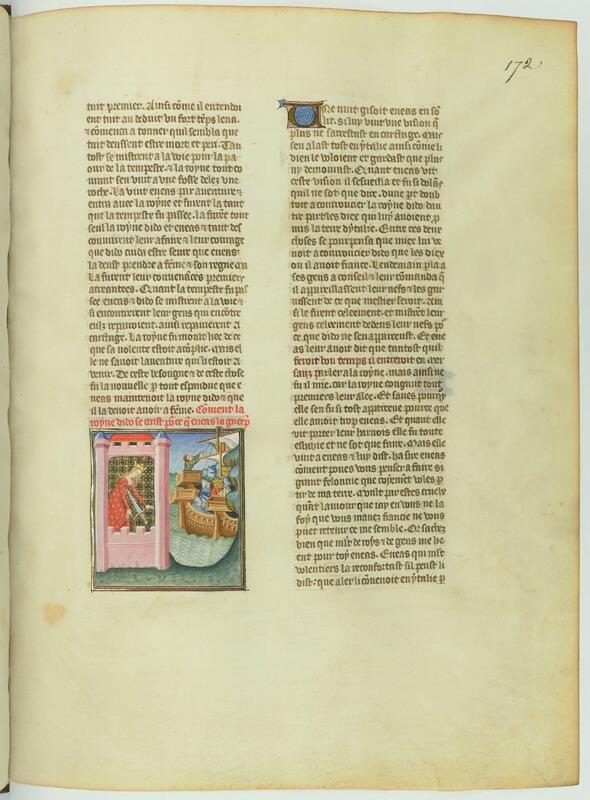 172
tuit premier. Ainsi cōme il entendoi
ent tuit au deduit vn fort tēps leua.
⁊ cōmenca a tonner quil sembla que
tuit deussent estre mort et peri. Tan
tost se mistrent a la voie pour la pa
our de la tempeste. ⁊ la royne tout co
urant sen vint a vne fosse delez vne
roche. La vint eneas par auenture ⁊
entra auec la royne et furent la tant
que la tempeste fu passee. la furēt tout
seul la royne dido et eneas ⁊ tant des
couurirent leur afaire ⁊ leur courage
que dido cuida estre seure que eneas
la deust prendre a fēme ⁊ son regne
La furent leur conuenāces premiers
Quant la tempeste fu pas
see eneas ⁊ dido se mistrent a la voie ⁊
si encontrerent leur gens qui encōtre
eulz repairoient. ainsi repairerent a
cartage. La royne fu moult liee de ce
que sa volente estoit acōplie. Mais el
le ne sauoit lauenture qui lestoit a
venir. De ceste besoigne ⁊ de ceste chose
fu la nouuelle ꝑ tout espandue que e
neas maintenoit la royne dido ⁊ que
il la deuoit auoir a fēme. Cōment la
royne dido se ocist pōr ce q̄ eneas la guerp̄
Vne nuit gisoit eneas en sō
lit. si luy vint vne vision q̄
plus ne sarrestast en cartage. Mais
sen alast tost en ytalie ainsi cōme li
dieu le voloient et gardast que plus
ny demourast. Quant eneas vit
ceste vision il sesueilla et fu si dolāt
quil ne sot que dire. dune ꝑt doub
toit a courroucier la royne dido dau
tre part les diex qui luy auoient ꝓ
mis la terre dytalie. Entre ces deux
choses se pourpensa que miex lui ve
noit a courroucier dido que les diex
ou il auoit fiance. Lendemain ꝑla a
ses gens a conseil ⁊ leur cōmanda q̄
il appareillassent leur nefs ⁊ les gar
nissent de ce que mestier seroit. Ain
si le firent celeement. et mistrēt leur
gens celeement dedens leur nefs pōr
ce que dido ne sen apparceust. Et ene
as leur auoit dit que tantost quil
feroit bon temps il entreroit en mer
sanz parler a la royne. mais ainsi ne
fu il mie. car la royne congnut tout
premiers leur aloe. Et sauez pourqͥ
elle sen fu si tost apperceue pource que
elle amoit trop eneas. Et quant elle
vit porter leur harnois elle fu toute
esbahie et ne sot que faire. Mais elle
vint a eneas ⁊ luy dist. ha sire eneas
cōment poues vous penser a faire si
grant felonnie que voles ꝑ
tir de ma terre. Moult par estes cruelz
quāt lamour que iay en vous ne la
foy que vous mauez fiancie ne vous
puet retenir ce me semble. Or sachez
bien que mlt de roys ⁊ de gens me he
ent pour toy eneas. Eneas qui mlt
volentiers la reconfortast sil peust li
dist. que aler li cōuenoit en ytalie ꝑ